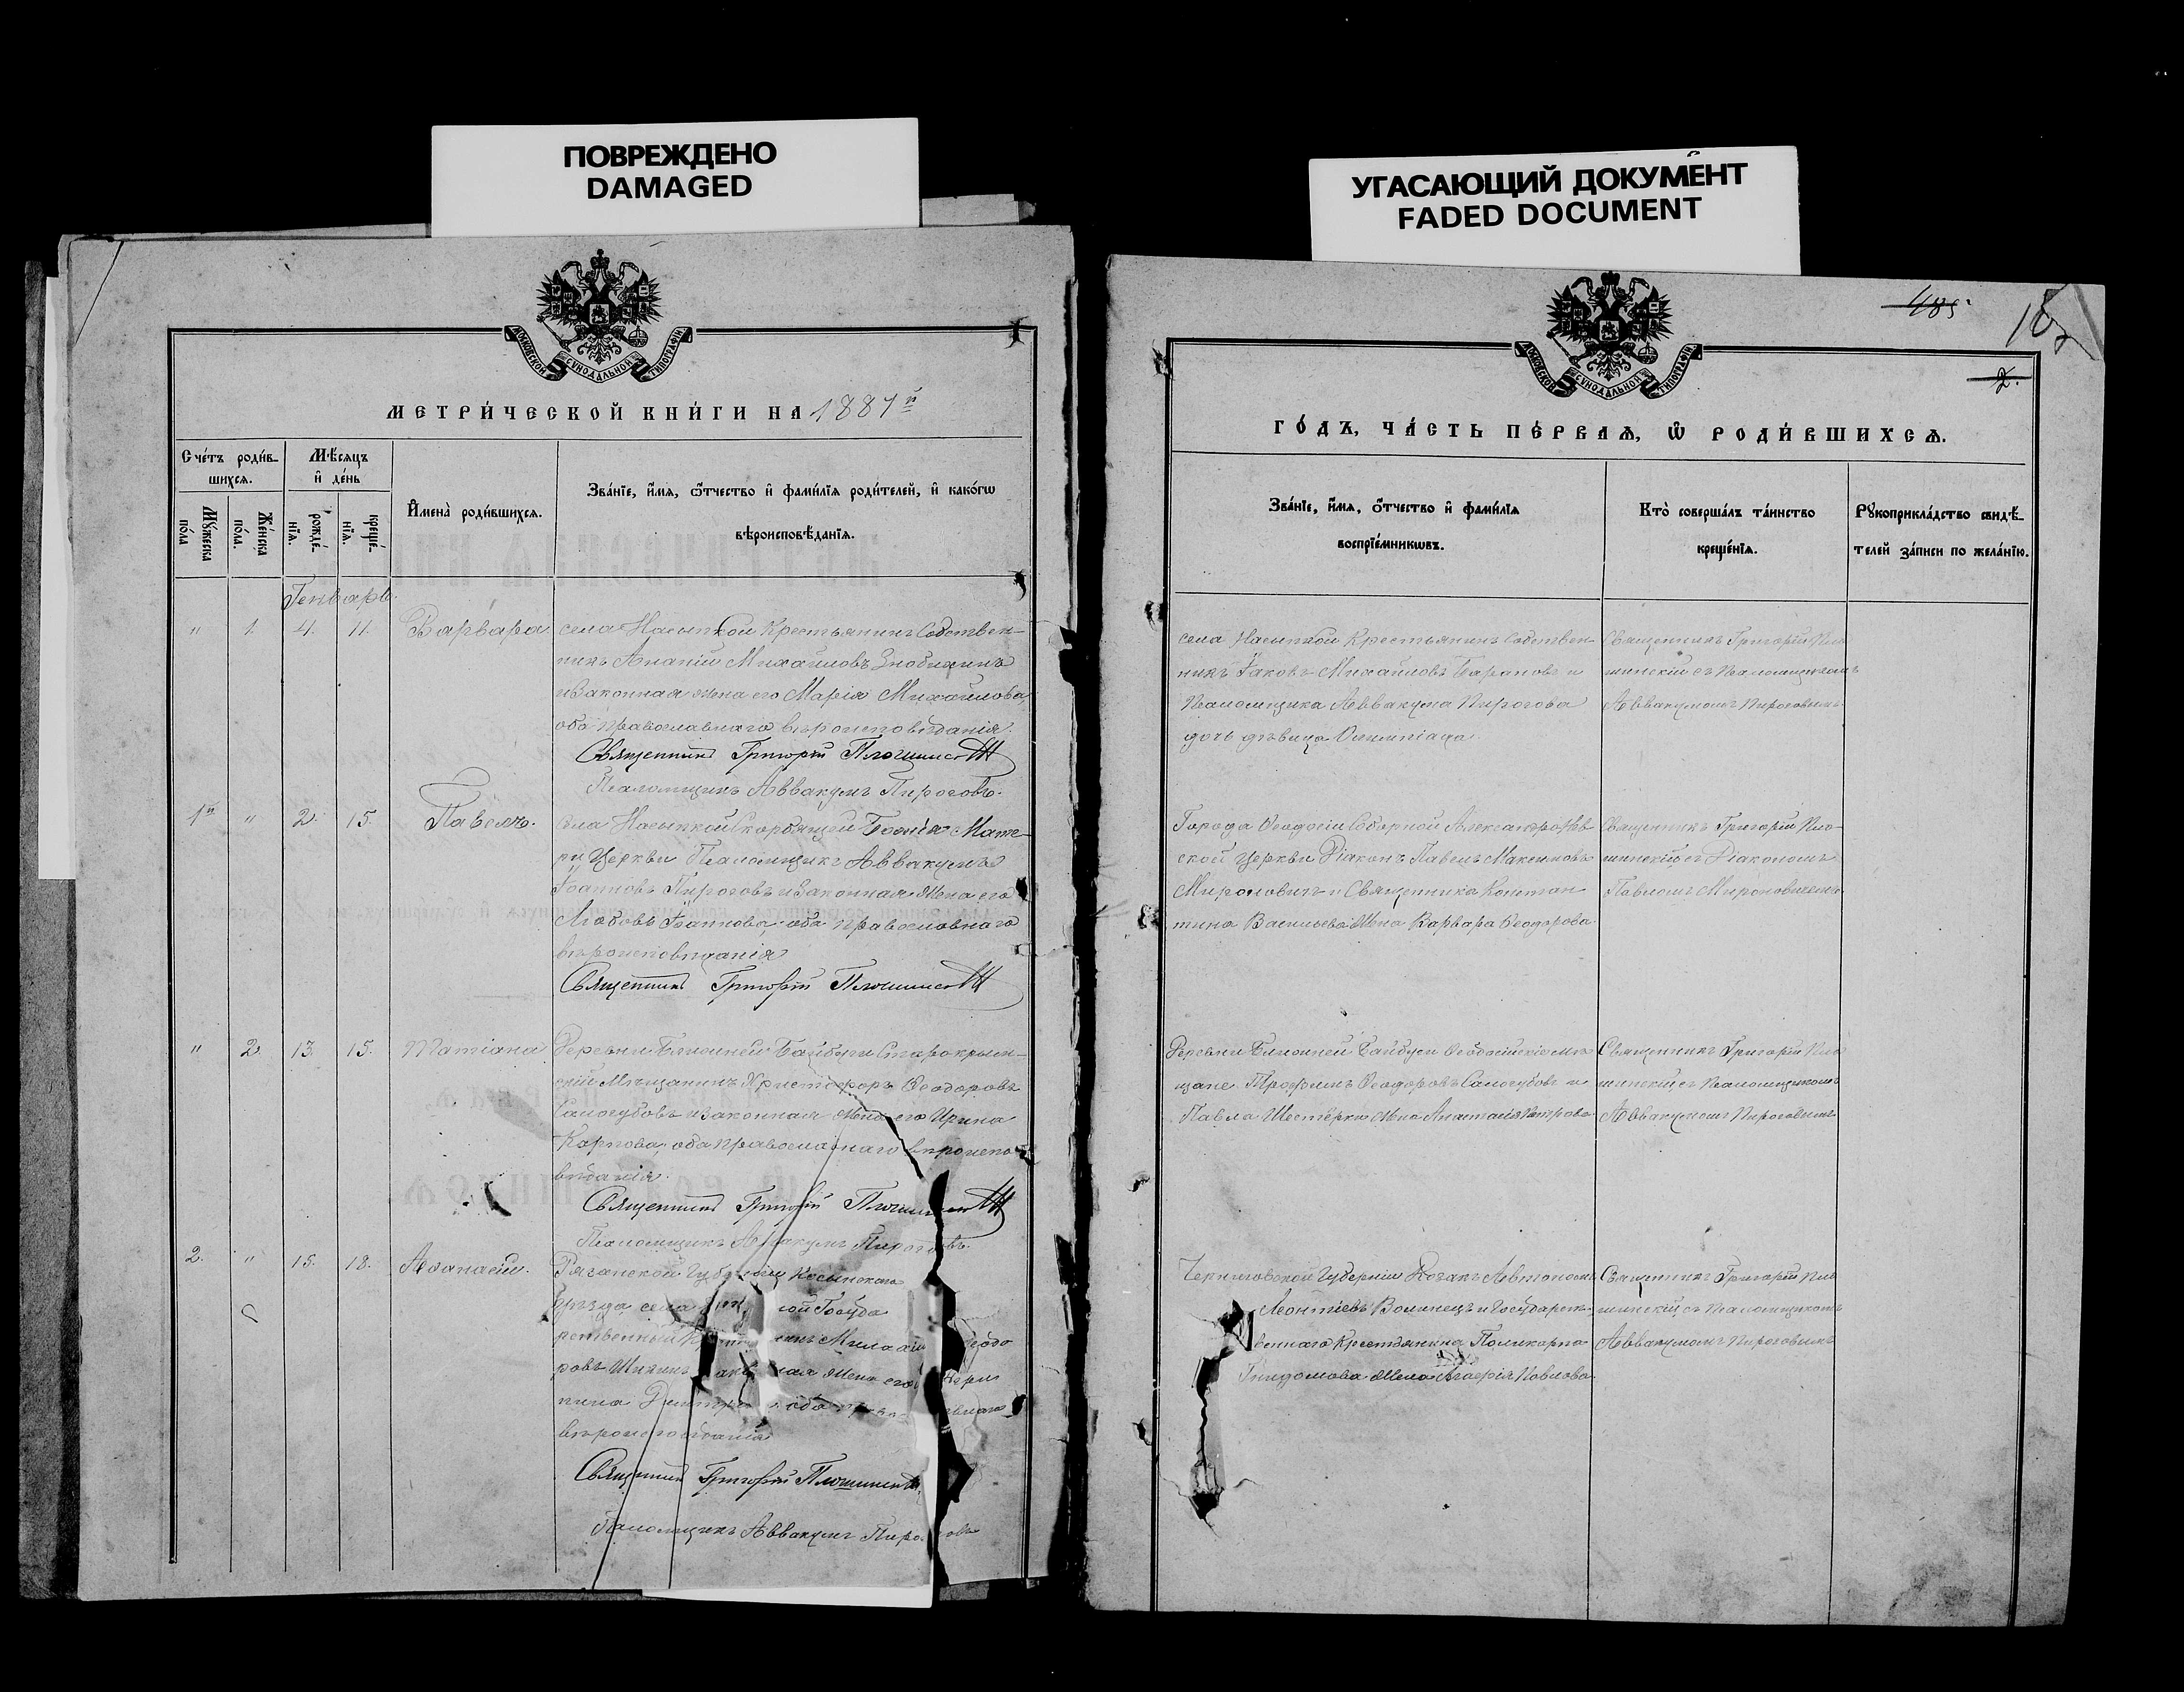 ПОВРЕЖДЕНО
DAMAGED
УГАСАЮЩИЙ ДОКУМЕНТ
FADED DOCUMENT
МОСКОВСКОЙ СѴНОДАЛЬНОЙ ТИПОГРАФІИ
МЕТРИ́ЧЕСКОЙ КНИ́ГИ НА 1887й
Сче́тъ роди́в-
шихсѧ.
Мѣ́сѧцъ
и҆ де́нь
Мꙋ́жеска
по́ла
Же́нска
по́ла.
рожде́-
нїѧ.
креще́-
нїѧ.
И҆мена̀ роди́вшихсѧ.
Зва́нїе, и҆́мѧ, ѻ҆́тчество и҆ фами́лїѧ роди́телей, и҆ како́гѡ
вѣроисповѣ́данїѧ.
Генварь.
" 1. 4. 11. Варвара села Насыпкой Крестьянинъ Собствен-
никъ Ананій Михайловъ Знобихинъ
и законная жена его Марія Михайлова,
оба православнаго вѣроисповѣданія.
Священникъ Григорій
Псаломщикъ Аввакумъ Пироговъ.
1й " 2. 15. Павелъ. села Насыпкой Скорбящей Божіей Мате-
ри Церкви Псаломщикъ Аввакумъ
Іоанновъ Пироговъ и законная жена его
Любовь Іоаннова, оба православнаго
вѣроисповѣданія
Священникъ Григорій
" 2. 13. 15. Татіана Деревни Ближней Байбуги Старокрым-
скій Мѣщанинъ Христофоръ Ѳеодоровъ
Самогубовъ и законная жена его Ирина
Карпова, оба православнаго вѣроиспо-
вѣданія.
Священникъ Григорій
Псаломщикъ Аввакумъ Пироговъ.
2. " 15. 18. Аѳанасій. Рязанской Губерніи
уѣзда села Госуда
рственный
ровъ жена его
вѣроисповѣданія
Священникъ Григорій
Псаломщикъ Аввакумъ Пироговъ
485
2.
МОСКОВСКОЙ СѴНОДАЛЬНОЙ ТИПОГРАФІИ
ГО́ДЪ, ЧА́СТЬ ПЕ́РВАѦ, Ѡ҆ РОДИ́ВШИХСѦ.
Зва́нїе, и҆́мѧ, ѻ҆́тчество и҆ фами́лїѧ
воспрїе́мникѡвъ.
Кто̀ соверша́лъ та́инство
креще́нїѧ.
Рꙋкоприкла́дство свидѣ́-
телей за́писи по жела́нїю.
села Насыпкой Крестьянинъ Собствен-
никъ Іаковъ Михайловъ Барановъ и
Псаломщика Аввакума Пирогова
дочь дѣвица Олимпіада.
Священникъ Григорій
съ Псаломщикомъ
Аввакумомъ Пироговымъ
Города Ѳеодосіи Соборной Александро-Нев-
ской Церкви Діаконъ Павелъ Максимовъ
Мироновичъ и Священника Констан
тина Васильева жена Варвара Ѳеодорова.
Священникъ Григорій
съ Діакономъ
Павломъ Мироновичемъ
Деревни Ближней Байбуги Ѳеодосійскіе мѣ
щане Трофимъ Ѳеодоровъ Самогубовъ и
Павла Шестерки жена Анастасія Петрова
Священникъ Григорій
съ Псаломщикомъ
Аввакумомъ Пироговымъ
Черниговской Губерніи Козакъ Автономъ
Леонтіевъ Волинецъ и Государст-
веннаго Крестьянина Поликарпа
жена Агафія Павлова.
Священникъ Григорій
съ Псаломщикомъ
Аввакумомъ Пироговымъ